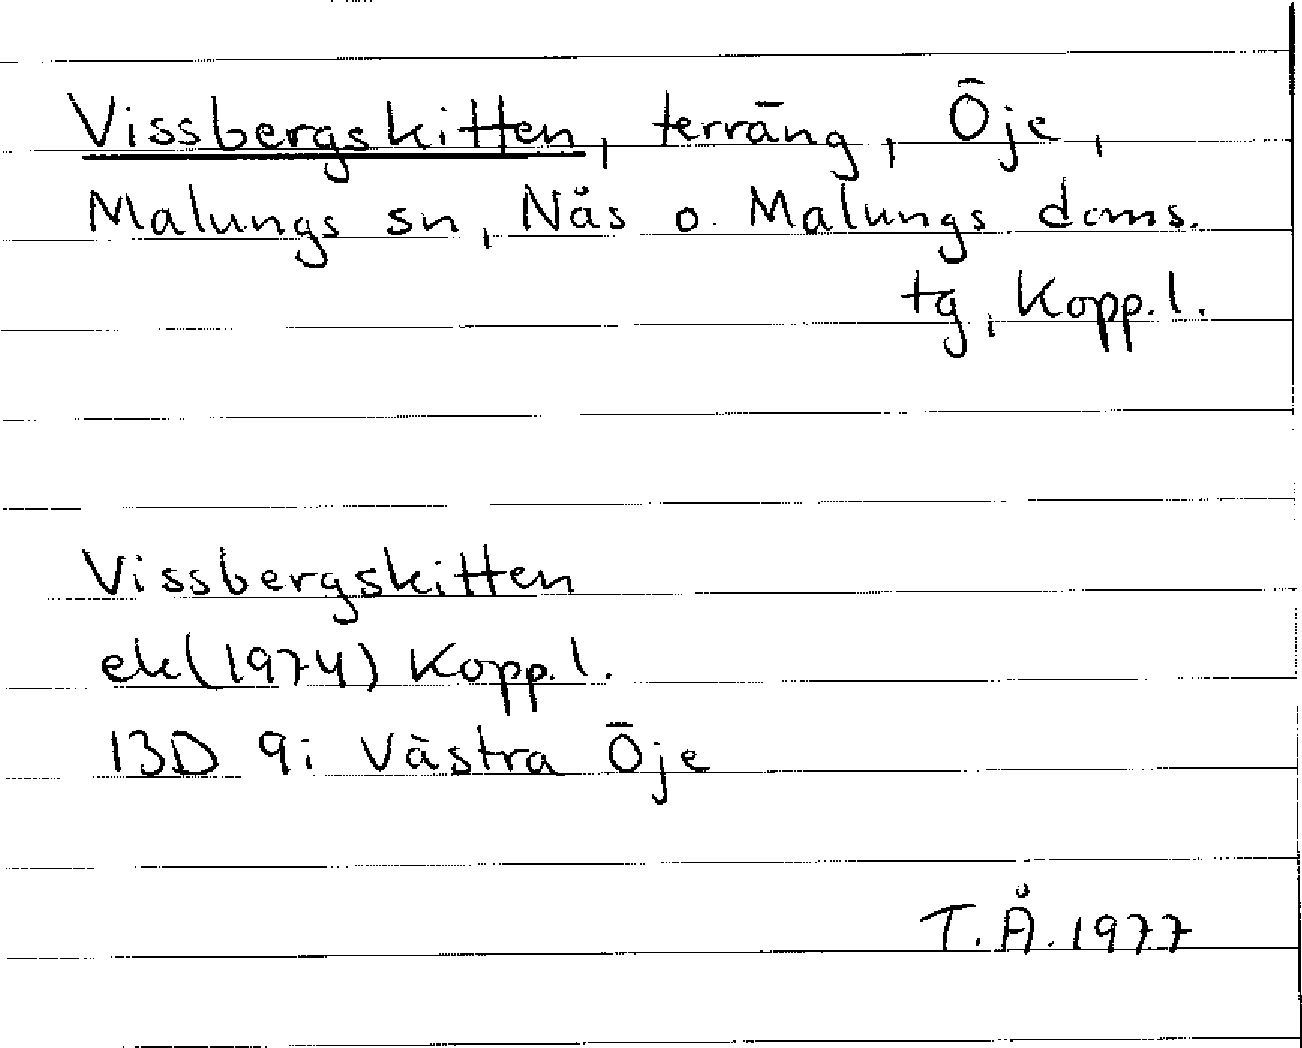 Vissbergskitten, terräng, Öje,
Malungs sn, Nås o. Malungs doms.
tg, Kopp. l.
Vissbergskitten
ek (1974) Kopp. l.
13D 9i Västra Öje
T. Å. 1977